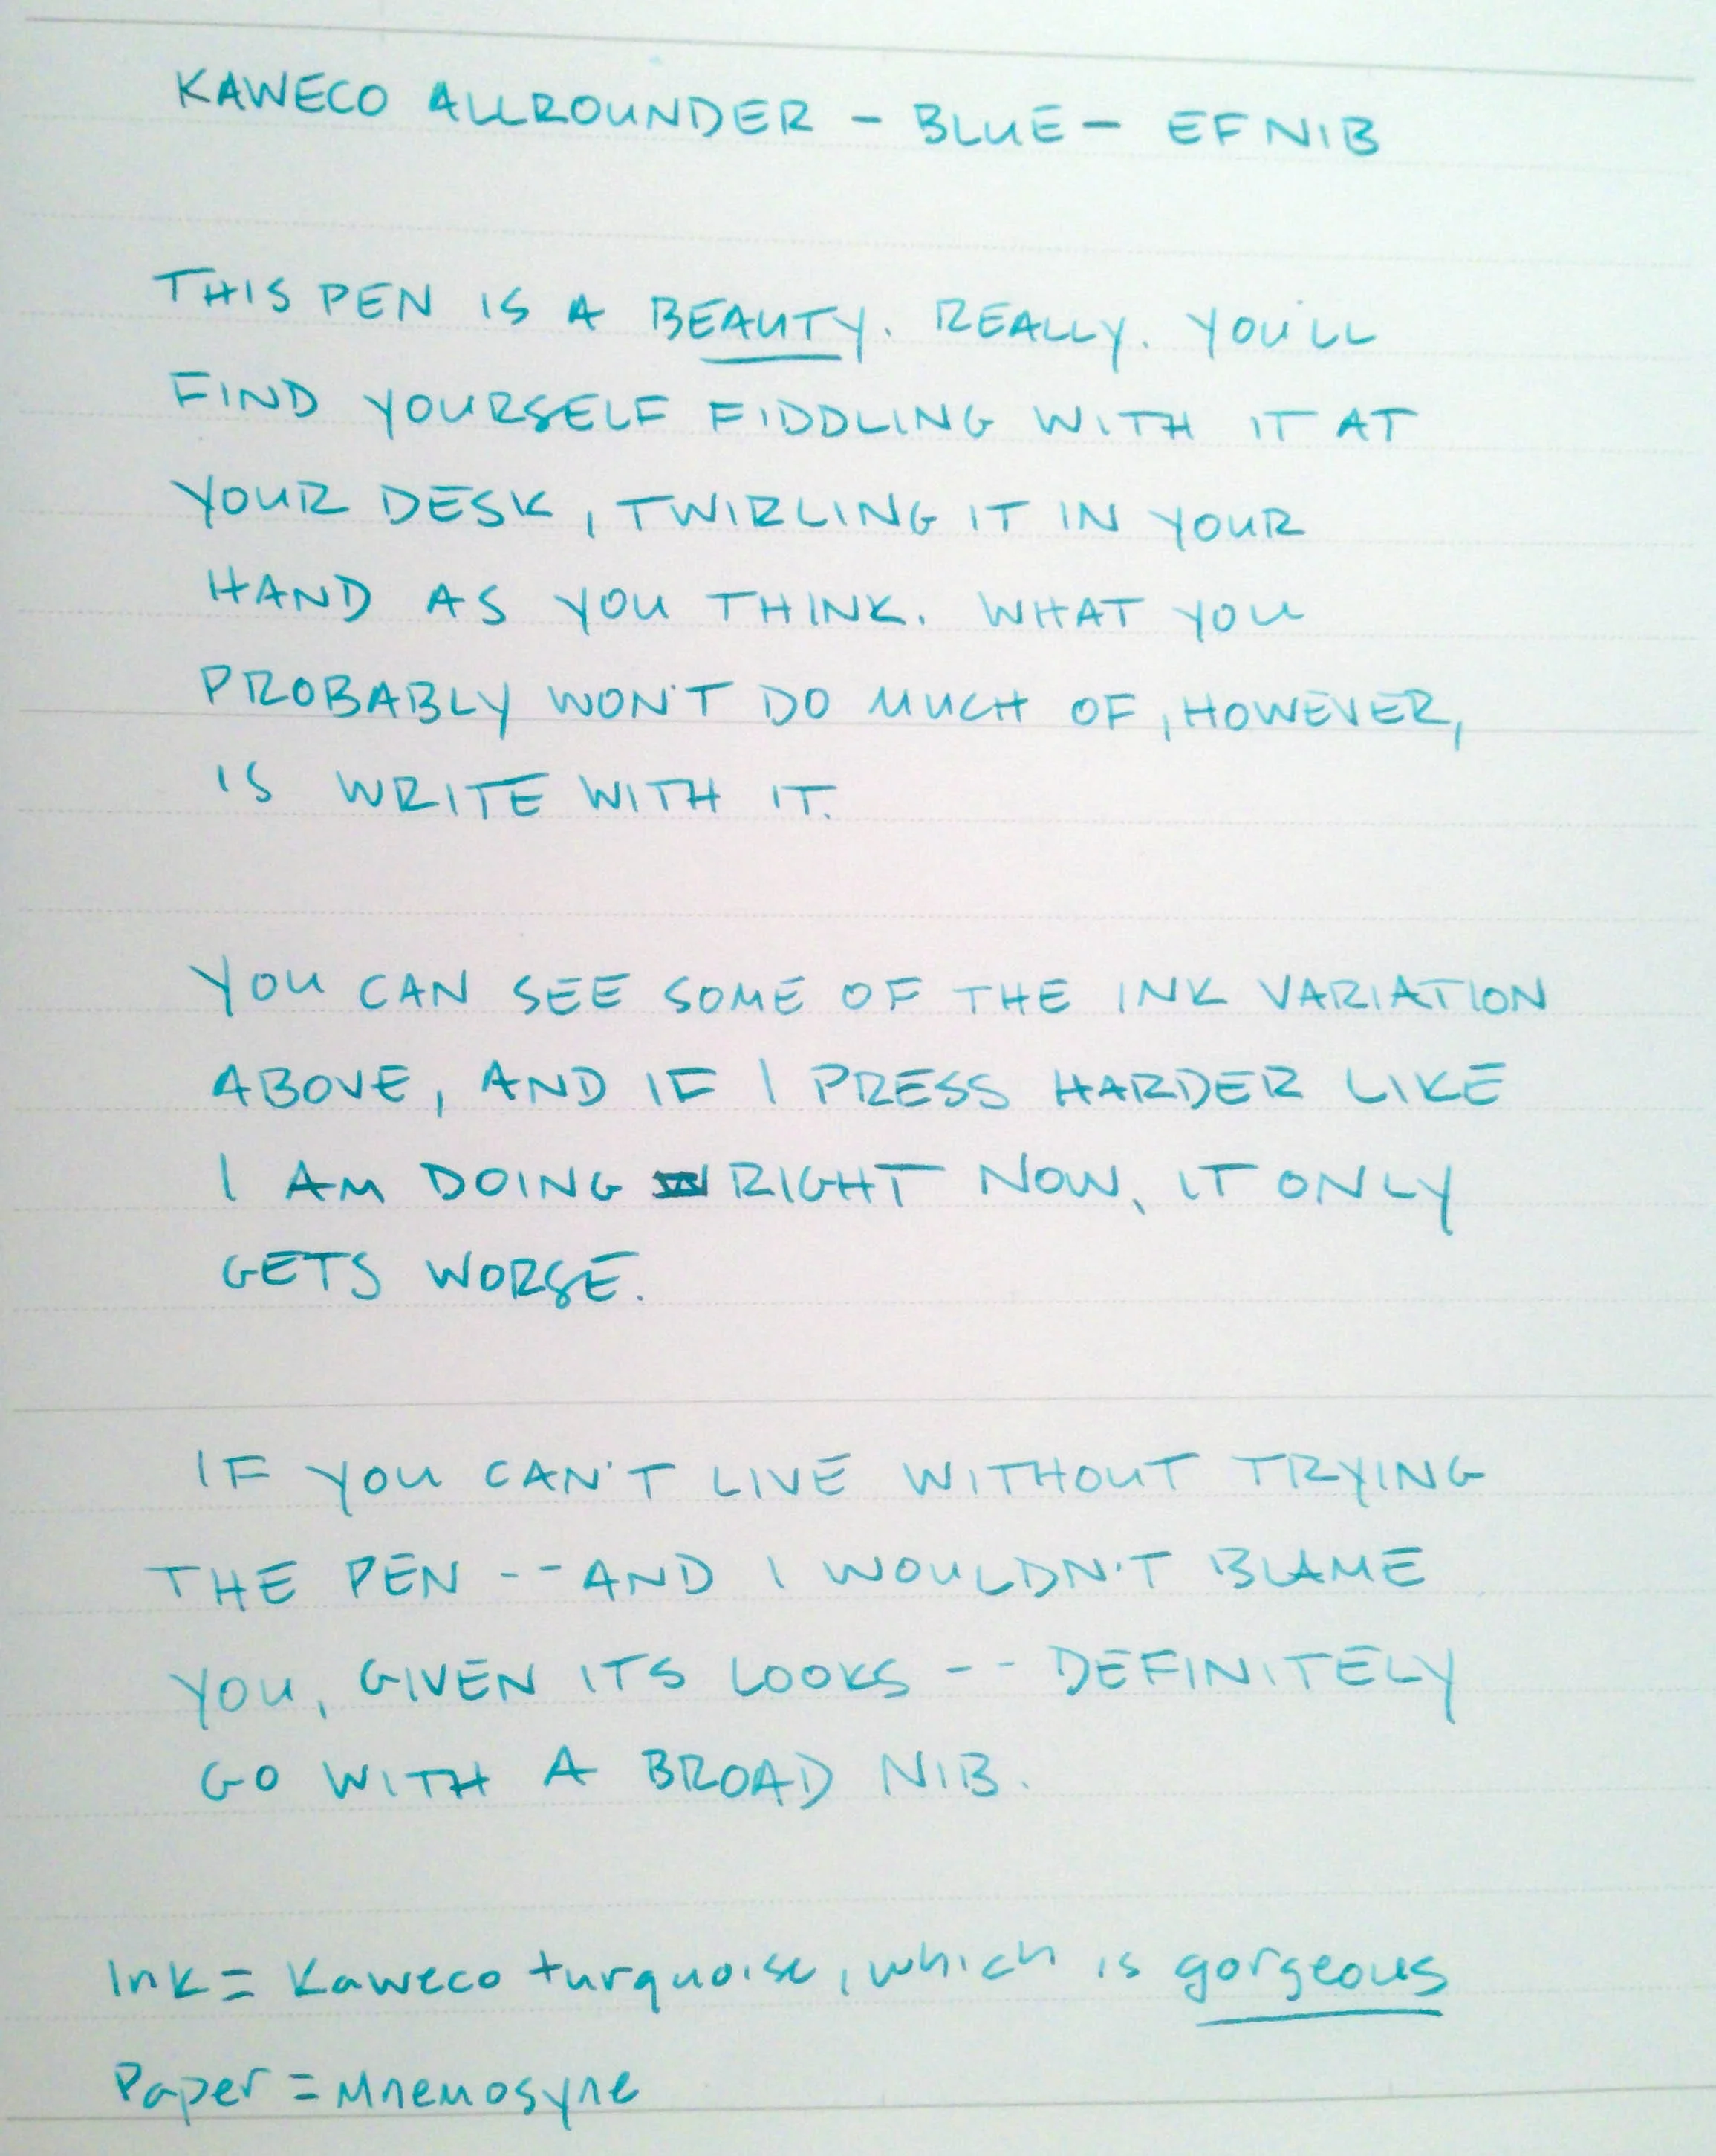 KAWECO ALLROUNDER - BLUE - EF NIB
THIS PEN IS A BEAUTY. REALLY. YOU'LL
FIND YOURSELF FIDDLING WITH IT AT
YOUR DESK, TWIRLING IT IN YOUR
HAND AS YOU THINK. WHAT YOU
PROBABLY WON'T DO MUCH OF, HOWEVER,
IS WRITE WITH IT.
YOU CAN SEE SOME OF THE INK VARIATION
ABOVE, AND IF I PRESS HARDER LIKE
I AM DOING RIGHT NOW, IT ONLY
GETS WORSE.
IF YOU CAN'T LIVE WITHOUT TRYING
THE PEN -- AND I WOULDN'T BLAME
YOU, GIVEN ITS LOOKS -- DEFINITELY
GO WITH A BROAD NIB.
Ink = Kaweco turquoise, which is gorgeous
Paper = Mnemosyne